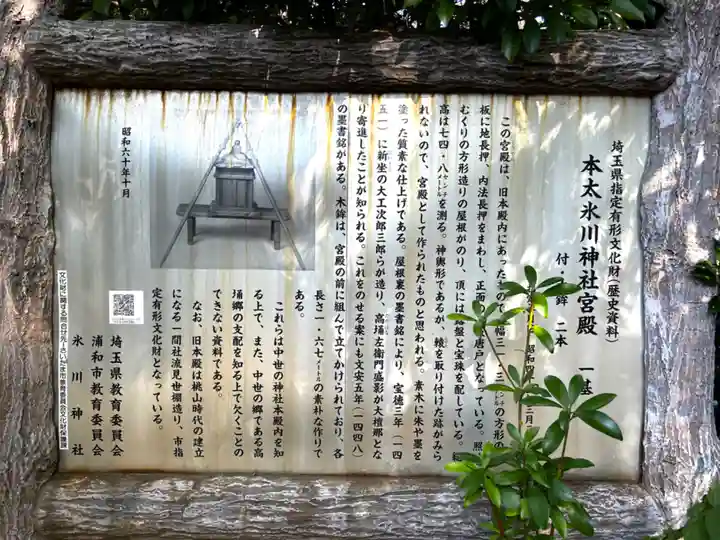 埼玉県指定有形文化財(歴史資料)
本太氷川神社宮殿 一基
付・ 鉾 二本
昭和 三月
この宮殿は、旧本殿内にあったもので、幅三 ・三センチメートルの方形の
板に地長押、内法長押をまわし、正面 唐戸となっている。照
むくりの方形造りの屋根がのり、頂には 盤と宝珠を配している。
高は七四・八センチメートルを測る。神輿形であるが、轅を取り付けた跡がみら
れないので、宮殿として作られたものと思われる。素木に朱や墨を
塗った質素な仕上げである。屋根裏の墨書銘により、宝徳三年(一四
五一)に新坐の大工次郎三郎らが造り、高埇左衛門盛影が大檀那とな
り寄進したことが知られる。これをのせる案にも文安五年(一四四八)
の墨書銘がある。木鉾は、宮殿の前に組んで立てかけられており、各
長さ一・六七メートルの素朴な作りで
ある。
これらは中世の神社本殿内を知
る上で、また、中世の郷である高
埇郷の支配を知る上で欠くことの
できない資料である。
なお、旧本殿は桃山時代の建立
になる一間社流見世棚造り、市指
定有形文化財となっている。
昭和六十年十月
埼玉県教育委員会
浦和市教育委員会
氷川神社
文化財に関する問合せ先 さいたま市教育委員会文化財保護課